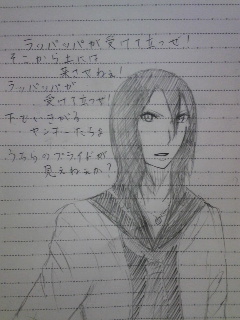 ラッパッパが受けて立つぜ!
そこから上には
来させねぇ!
ラッパッパが
受けて立つぜ!
下でいきがる
ヤンキーたちよ
うちらのプライドが
見えねぇか?